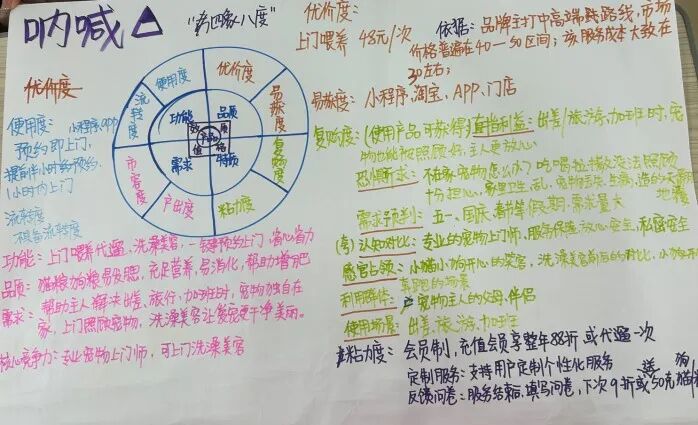 呐喊△
"考四象八度"
优价度
使用度: 小程序、APP
预约即上门,
提前半小时预约,
1小时内上门
流转度
不具备流转度
使用度
优价度
易获度
复购度
粘力度
产出度
市容度
流转度
功能
品质
需求
特质
产品
优价度:
上门喂养 48元/次
依据: 品牌主打中高端路线,市场
价格普遍在40-50区间;该服务成本大致在
30左右;
易获度: 小程序、淘宝、APP、门店
复购度:(使用产品可获得)直指利益: 出差/旅游、加班时,宠
物也能被照顾好,主人更放心
恐惧诉求: 不在家宠物怎么办?吃喝拉撒没法照顾
十分担心,家里卫生乱,宠物丢失、生病,造的天翻
地覆
需求预判: 五一、国庆、春节等假期,需求量大
认知对比: 专业的宠物上门师,服务保障,放心安全,私密安全
感官占领: 小猫小狗开心的笑容,洗澡美容前后的对比,小狗和
奔跑的场景
利用群体: 宠物主人的父母、伴侣
使用场景: 出差、旅游、加班
粘力度: 会员制,充值会员享整年88折 或代遛一次
定制服务: 支持用户定制个性化服务
反馈问卷: 服务结束后,填写问卷,下次9折或50元
功能: 上门喂养代遛、洗澡美容,一键预约上门,省心省力
品质: 猫粮狗粮易发照,充足营养,易消化,帮助增肥
需求: 帮助主人解决出差、旅行,加班时,宠物独自在
家,上门照顾宠物,洗澡美容让爱宠更干净美丽。
核心竞争力: 专业宠物上门师,可上门洗澡美容